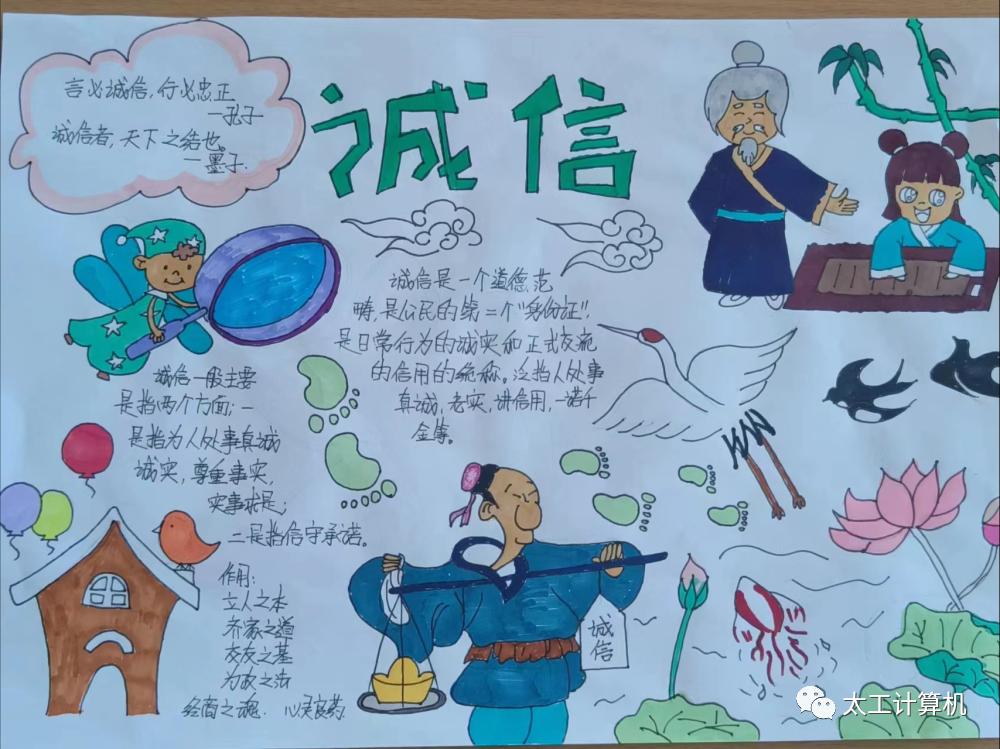 言必诚信，行必忠正
—孔子
诚信者，天下之结也。
—墨子.
诚信
诚信是一个道德范
畴，是公民的第二个"身份证"，
是日常行为的诚实和正式交流
的信用的统称。泛指人处事
真诚、老实、讲信用，一诺千
金等。
诚信一般主要
是指两个方面：一
是指为人处事真诚
诚实，尊重事实，
实事求是；
二是指信守承诺。
作用：
立人之本
齐家之道
交友之基
为政之法
经商之魂. 心灵良药.
诚信
太工计算机